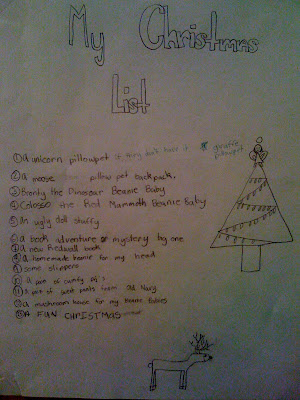 My Christmas
List
① A unicorn pillowpet if they don't have it giraffe
pillowpet
② A moose pillow pet backpack.
③ Bronty the Dinosaur Beanie Baby
④ Colosso the Red Mammoth Beanie Baby
⑤ An ugly doll stuffy
⑥ a book adventure or mystery by one
⑦ a new Redwall book
⑧ a homemade beanie for my head
⑨ some slippers
⑩ a pair of comfy pj's
⑪ a pair of sweat pants from Old Navy
⑫ a mushroom house for my beanie babies
⑬ A FUN CHRISTMAS